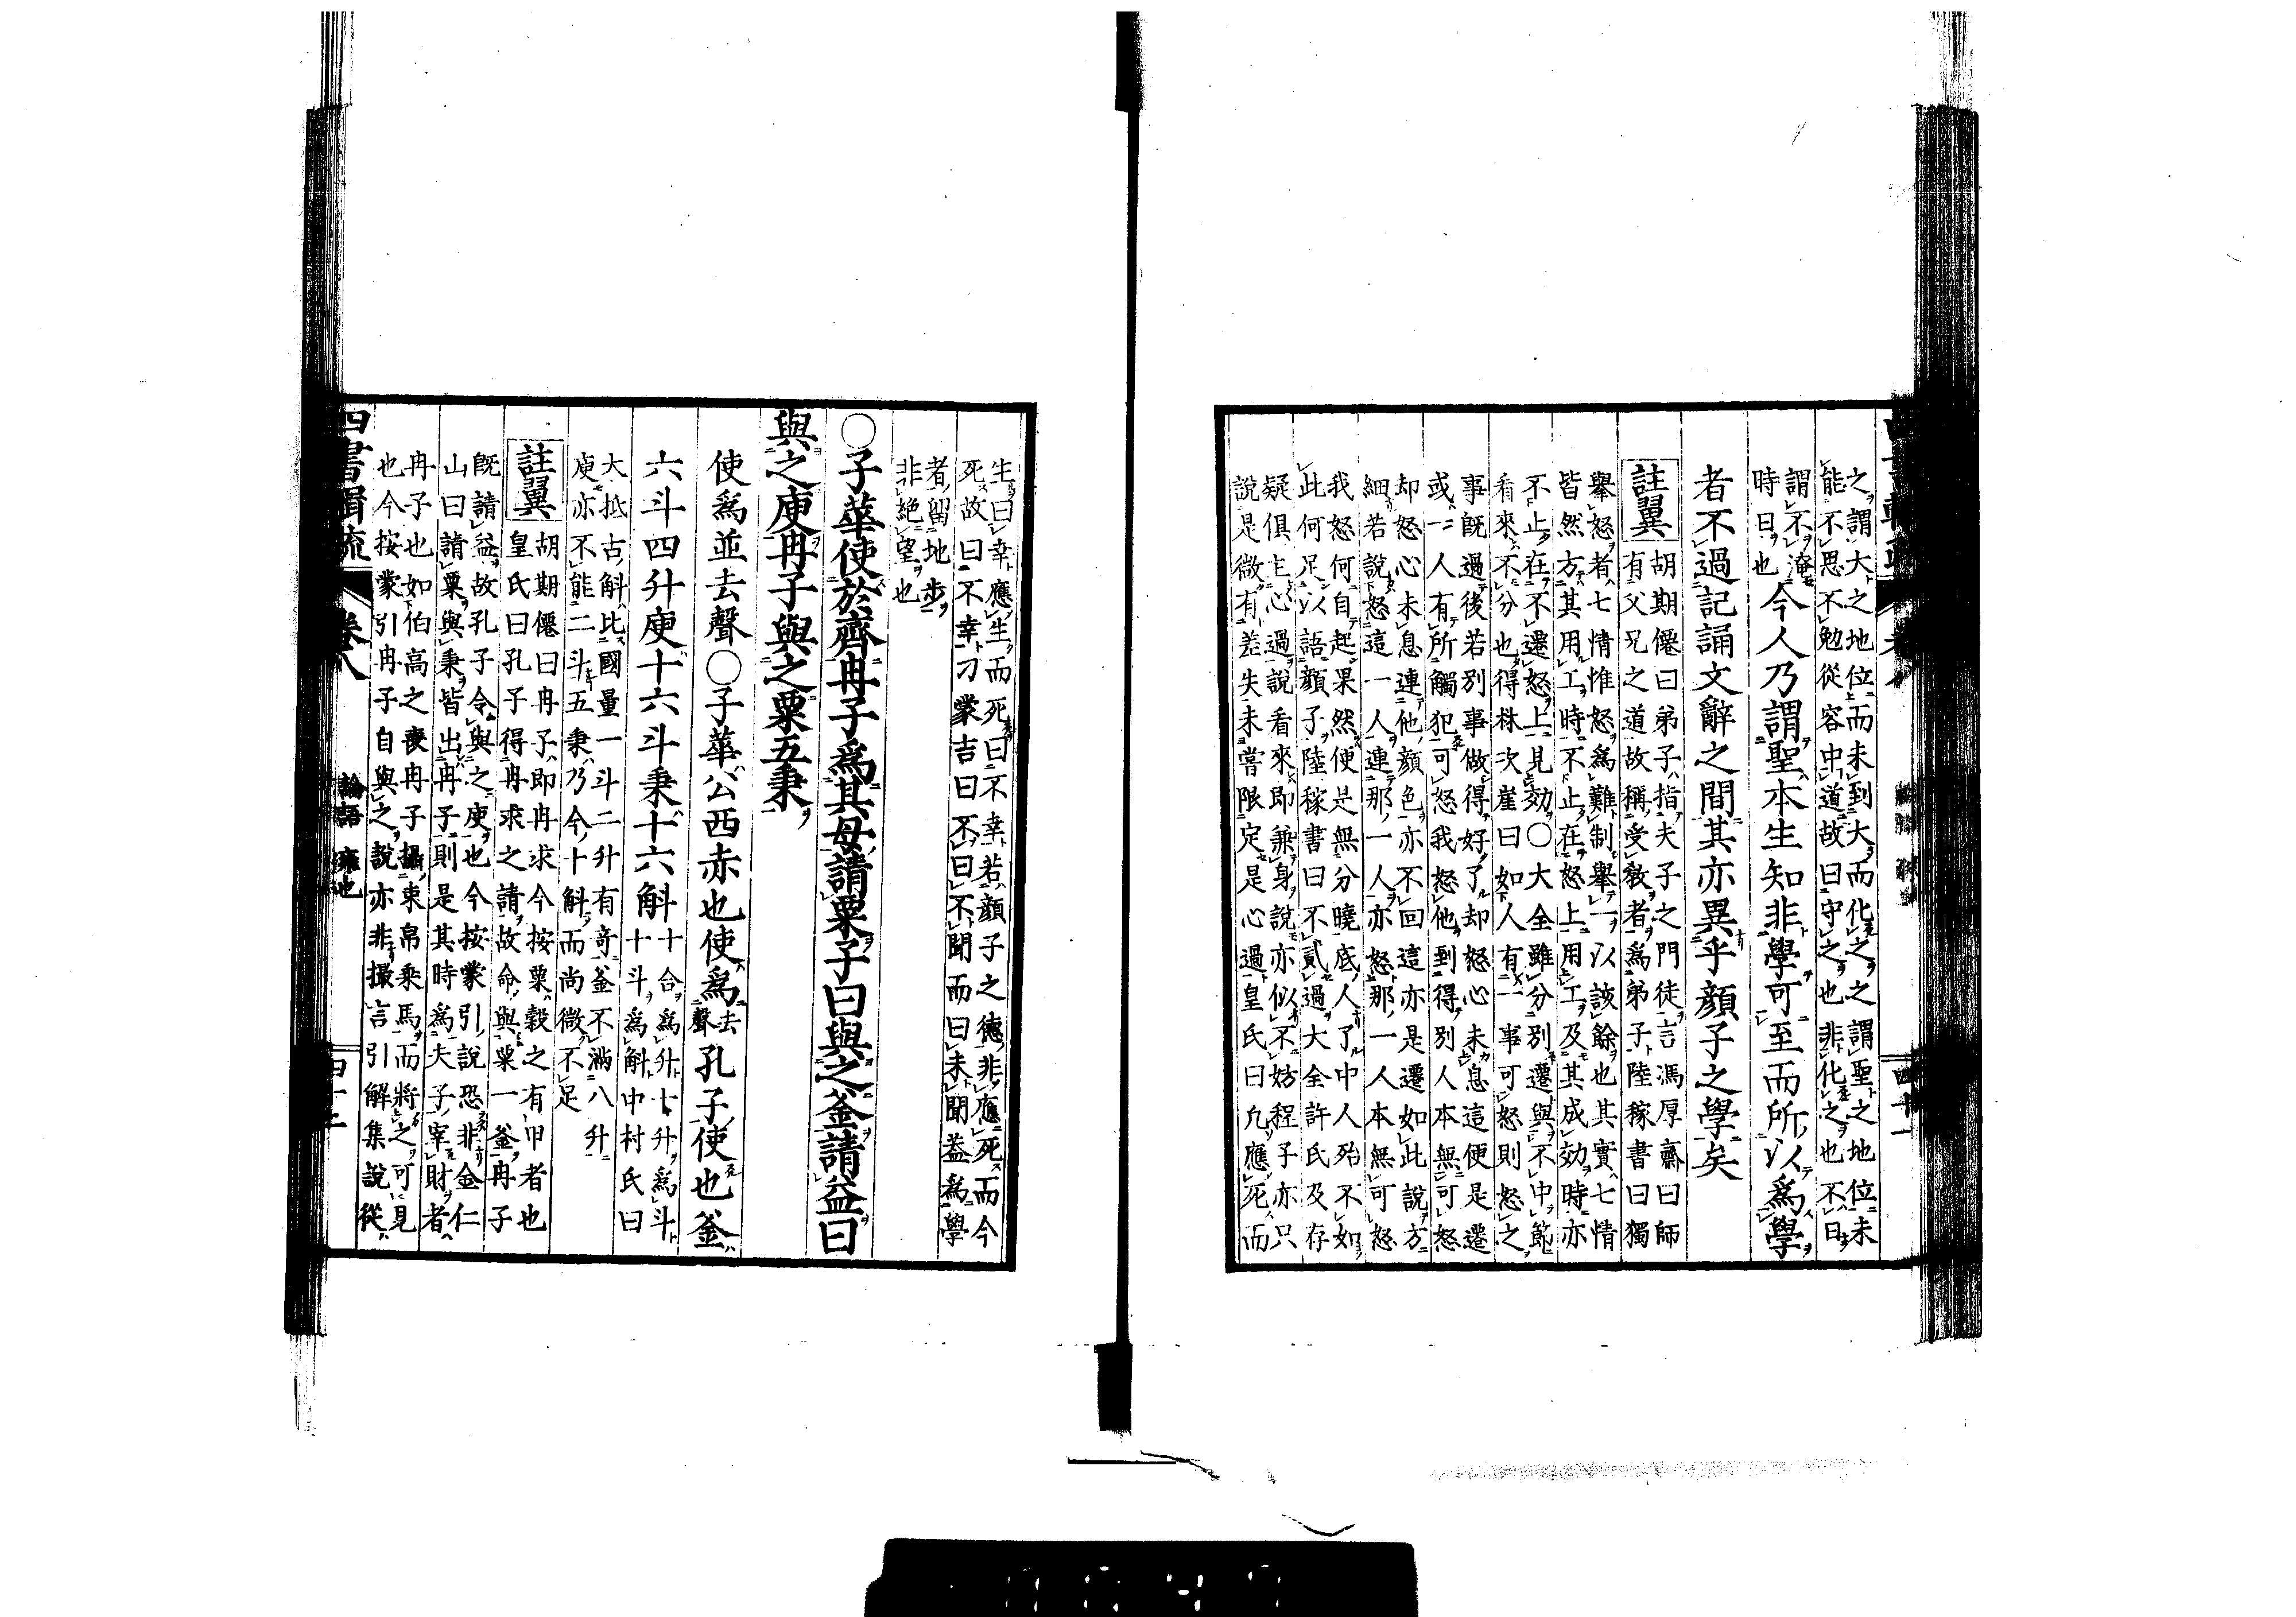 之謂大之地位而未到大而化之之謂聖之地位未
能不思不勉從容中道故曰守之也非化之也不日
謂不淹
時日也
今人乃謂聖本生知非學可至而所以爲學
者不過記誦文辭之間其亦異乎顔子之學矣
註翼
胡期僊曰弟子指夫子之門徒言馮厚齋曰師
有父兄之道故稱受敎者爲弟子陸稼書曰獨
舉怒者七情惟怒爲難制舉一以該餘也其實七情
皆然方其用工時不止在怒上用工及其成効時亦
不止在不遷怒上見効○大全雖分別遷與不中節
看來不分也得林次崖曰如人有一事可怒則怒之
事既過後若別事做得好了却怒心未息這便是遷
或一人有所觸犯可怒我怒他到得別人本無可怒
却怒心未息連他顔色亦不回這亦是遷如此說方
細若說怒這一人連那一人亦怒那一人本無可怒
我怒何自起果然便是無分曉底人了中人殆不如
此何足以語顔子陸稼書曰不貳過大全許氏及存
疑俱主心過說看來即兼身說亦似不妨程子亦只
說是微有差失未嘗限定是心過皇氏曰凢應死而
生曰幸應生而死曰不幸若顔子之德非應死而今
死故曰不幸刁蒙吉曰不曰不聞而曰未聞葢爲學
者留地步
非絕望也
○子華使於齊冉子爲其母請粟子曰與之釜請益曰
與之庾冉子與之粟五秉
使爲並去聲○子華公西赤也使爲去聲孔子使也釜
六斗四升庾十六斗秉十六斛十合爲升十升爲斗
十斗爲斛中村氏曰
大抵古斛比國量一斗二升有奇釜不滿八升
庾亦不能二斗五秉乃今十斛而尚微不足
註翼
胡期僊曰冉子即冉求今按粟穀之有甲者也
皇氏曰孔子得冉求之請故命與粟一釜冉子
既請益故孔子令與之庾也今按蒙引說恐非金仁
山曰請粟與秉皆出冉子則是其時爲夫子宰財者
冉子也如伯高之喪冉子攝束帛乘馬而將之可見
也今按蒙引冉子自與之說亦非撮言引解集說從
四書輯疏 卷八 論語 雍也